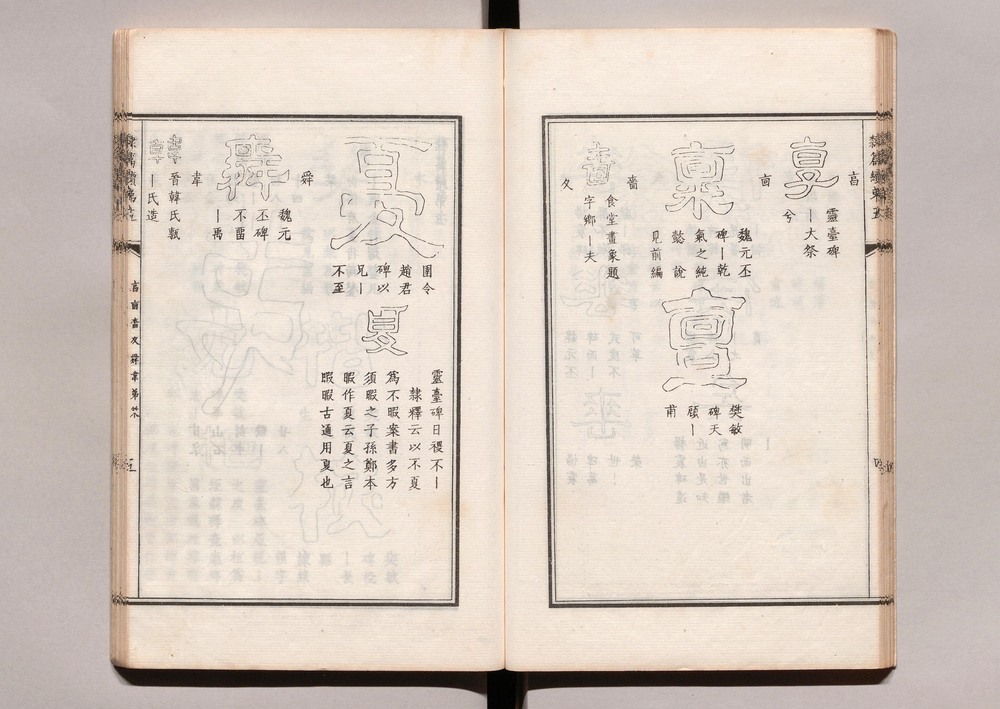 㐭
享
靈臺碑
丨大祭
兮
㐭
稟
魏元丕
碑丨乾
氣之純
懿說
見前編
亶
樊敏
碑天
顧丨
甫
嗇
嗇
食堂畫象題
字鄉丨夫
夊
夏
圉令
趙君
碑以
兄丨
不至
夏
靈臺碑日稷不丨
隸釋云以不夏
爲不暇案書多方
須暇之子孫鄭本
暇作夏云夏之言
暇暇古通用夏也
舜
舜
魏元
丕碑
不雷
丨禹
韋
晉韓氏甎
丨氏造